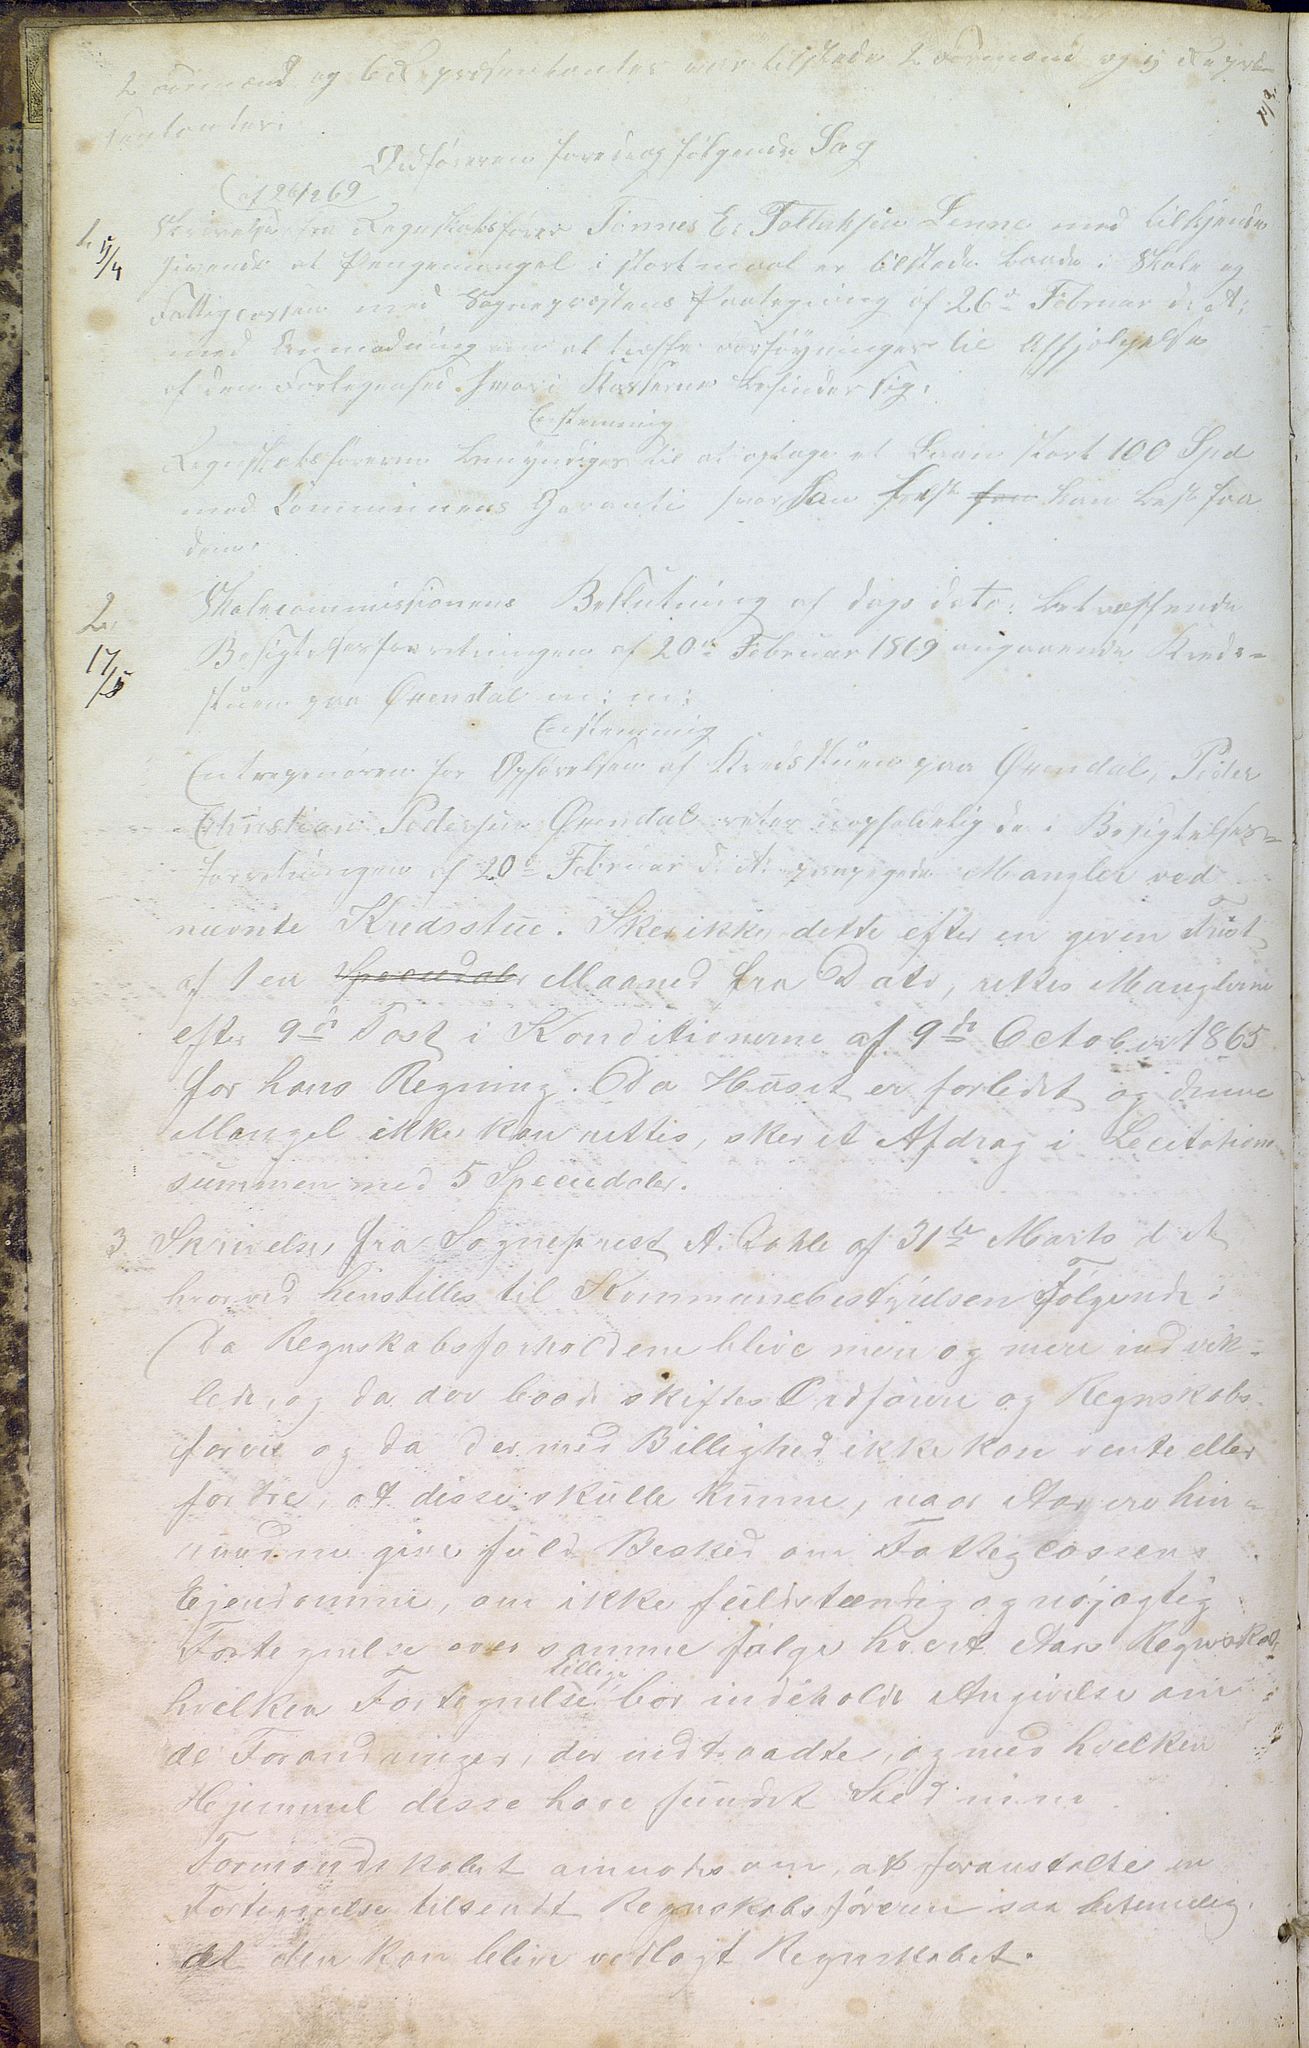 2 Formænd og 6 Repræsentanter var tilstede 2 Formænd og 5 Repræ-
sentanter.
Ordføreren foredrog følgende Sag
(af 26/2 69
1. 5/4 Skrivelse fra Regnskabsfører Tønnes E. Tollaksen Lenne med tilkjende-
givende at Pengemangel i stort maal er tilstede baade i Skole og
Fattigcassen med Sogneprestens Paategning af 26de Februar d. A.
med Anmodning om at træffe Forføyninger til Afhjælpelse
af den Forlegenhed hvori Kasserne befinder sig.
Enstemmig
Regnskabsføreren bemyndiges til at optage et Laan stort 100 Spd
med Communens Garanti hvor han helst kan best faa
dem.
2. 17/5 Skolecommissionens Beslutning af dags dato betræffende
Besigtelsesforretningen af 20de Februar 1869 angaaende Kreds-
stuen paa Øvendal m: m:
Enstemmig
Entreprenøren for Opførelsen af Kredsstuen paa Øvendal, Peder
Christian Pedersen Øvendal retter uopholdelig de i Besigtelses-
forretningen af 20de Februar d. A. paapegede Mangler ved
nævnte Kredsstue. Sker ikke dette efter en given Frist
af 1 en Speciedaler Maaned fra Dato, rettes Manglerne
efter 9de Post i Konditionerne af 9de October 1865
for hans Regning. Da Huset er forledet og denne
Mangel ikke kan rettes, sker et Afdrag i Lecitations
summen med 5 Speciedaler.
3 Skrivelse fra Sogneprest A. Dahle af 31te Marts d A
hvorved henstilles til Kommunebestyrelsen Følgende:
Da Regnskabsforholdene blive mere og mere indvik-
lede, og da der baade skiftes Ordførere og Regnskabs-
førere og da der med Billighed ikke kan vente eller
fordre, at disse skulle kunne, naar Aar ere hen-
rundne give fuld Besked om Fattigcassens
Ejendomme, om ikke fuldstændig og nøjagtig
Fortegnelse over samme følge hvert Aars Regnskab,
hvilken Fortegnelse tillige bør indeholde Angivelse om
de Forandringer, der indtraadte, og med hvilken
Hjemmel disse have fundet Sted m m
Formandskabet anmodes om, at foranstalte en
Fortegnelse tilsendt Regnskabsføreren saa betimelig,
at den kan blive vedlagt Regnskabet.